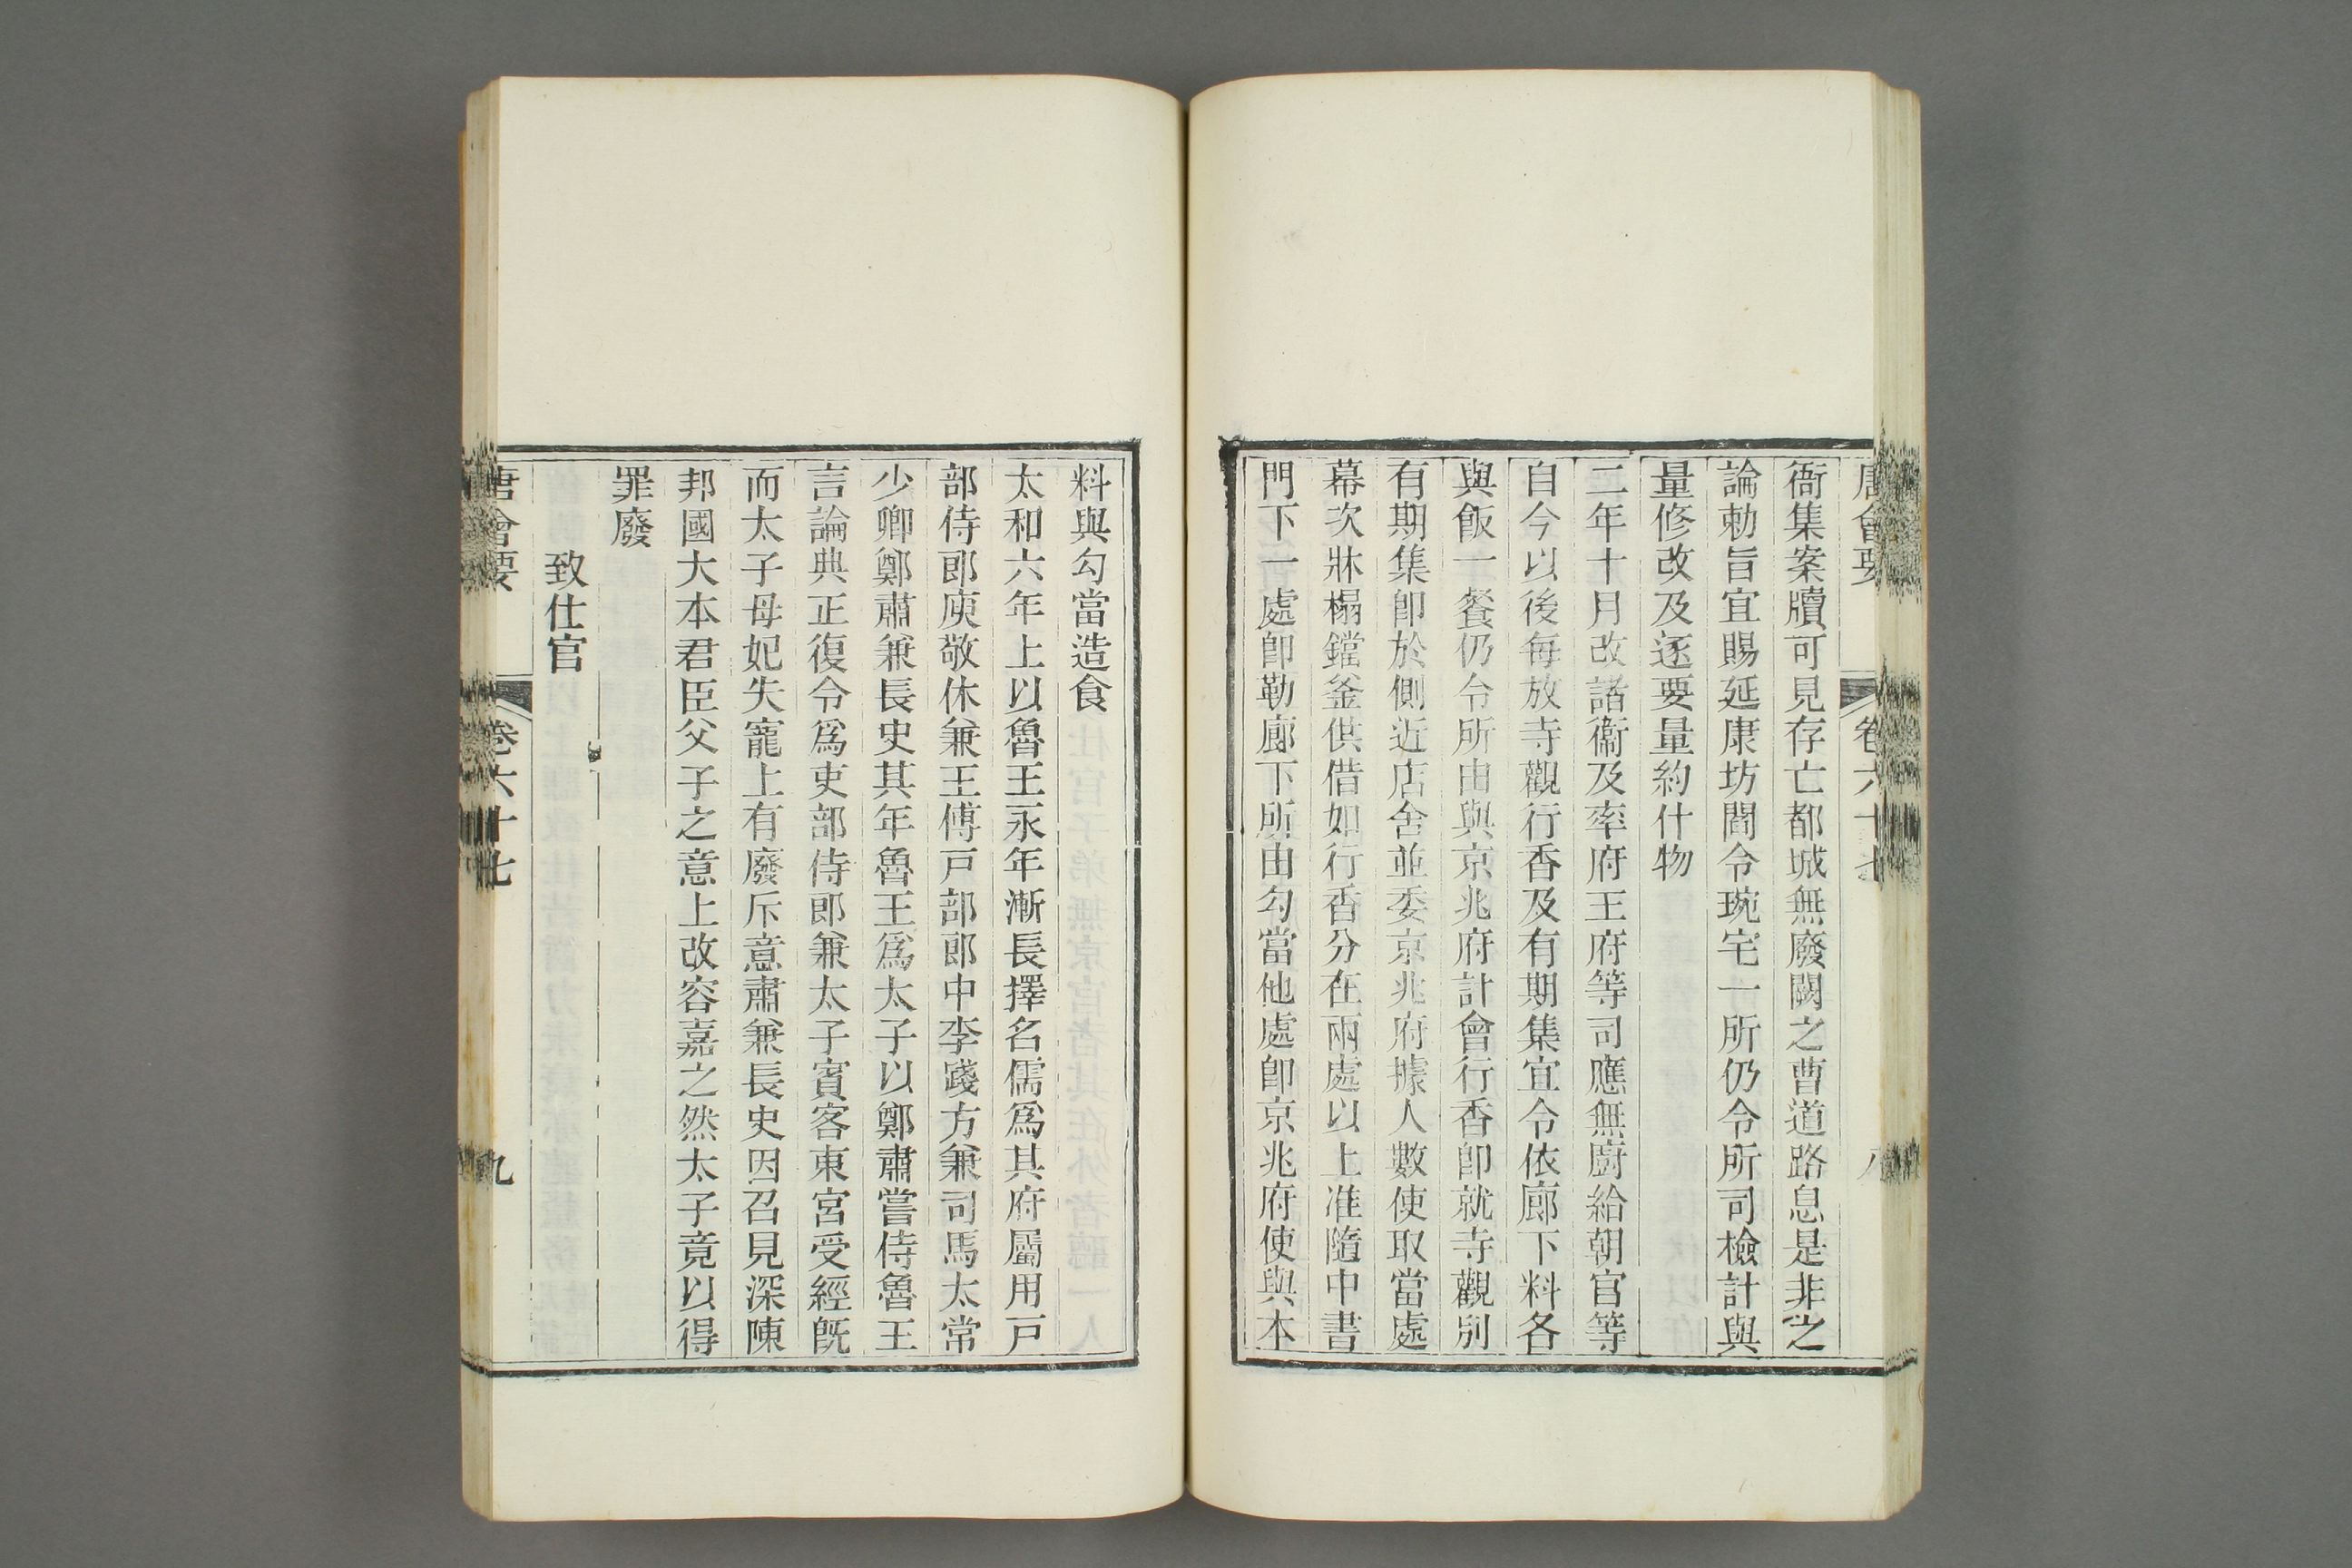 唐會要 卷六十七 八
衙集案牘可見存亡都城無廢闕之曹道路息是非之
論勅旨宜賜延康坊閻令琬宅一所仍令所司檢計與
量修改及逐要量約什物
二年十月改諸衞及率府王府等司應無廚給朝官等
自今以後每放寺觀行香及有期集宜令依廊下料各
與飯一餐仍令所由與京兆府計會行香卽就寺觀別
有期集卽於側近店舍並委京兆府據人數使取當處
幕次牀榻鐺釜供借如行香分在兩處以上准隨中書
門下一處卽勒廊下所由勾當他處卽京兆府使與本
料與勾當造食
太和六年上以魯王永年漸長擇名儒爲其府屬用戸
部侍郎庾敬休兼王傅戸部郎中李踐方兼司馬太常
少卿鄭肅兼長史其年魯王爲太子以鄭肅嘗侍魯王
言論典正復令爲吏部侍郎兼太子賓客東宮受經旣
而太子母妃失寵上有廢斥意肅兼長史因召見深陳
邦國大本君臣父子之意上改容嘉之然太子竟以得
罪廢
致仕官
唐會要 卷六十七 九